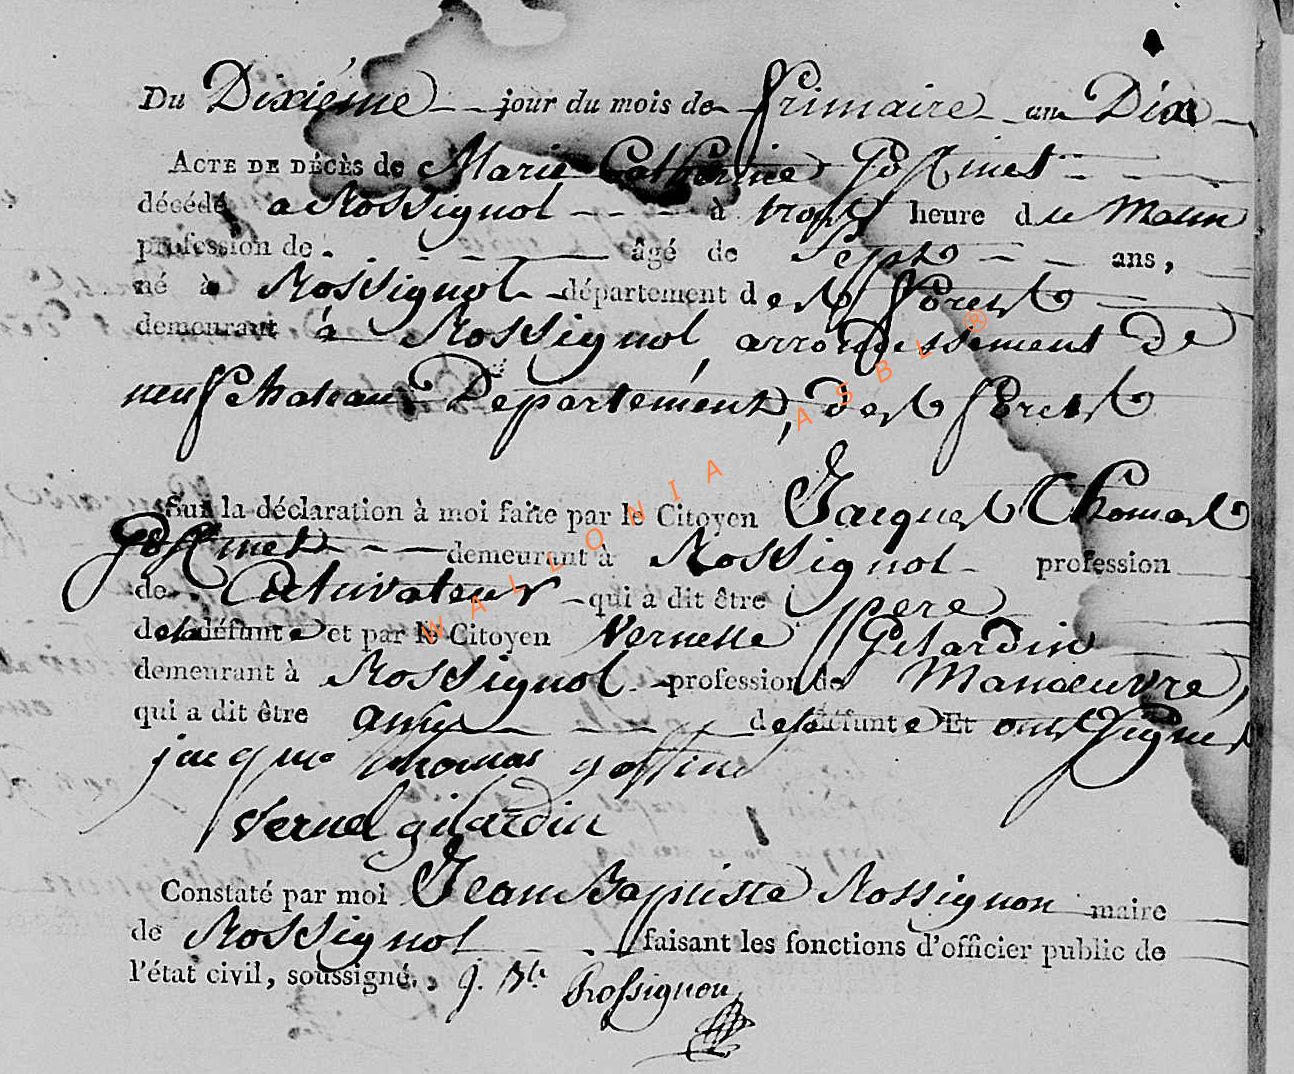 Du Dixiéme jour du mois de frimaire an Dix
ACTE DE DÉCÈS de Marie Catherine Goffinet
décédé a Rossignol à trois heure du Matin
profession de âgé de Sept ans,
né à Rossignol département des forest
demeurant à Rossignol, arrondissement De
neufchateau Departement, des forest
Sur la déclaration à moi faite par le Citoyen Jacques Thomas
Goffinet demeurant à Rossignol profession
de Cultivateur qui a dit être pere
de la défunte et par le Citoyen Vernelle Gilardin
demeurant à Rossignol profession de Manœuvre,
qui a dit être amy de la défunte Et ont signés
jacque thomas goffinet
Vernel gilardin
Constaté par moi Jean Baptiste Rossignon maire
de Rossignol faisant les fonctions d'officier public de
l'état civil, soussigné. J. Bte Rossignon
WALLONIA ASBL ®